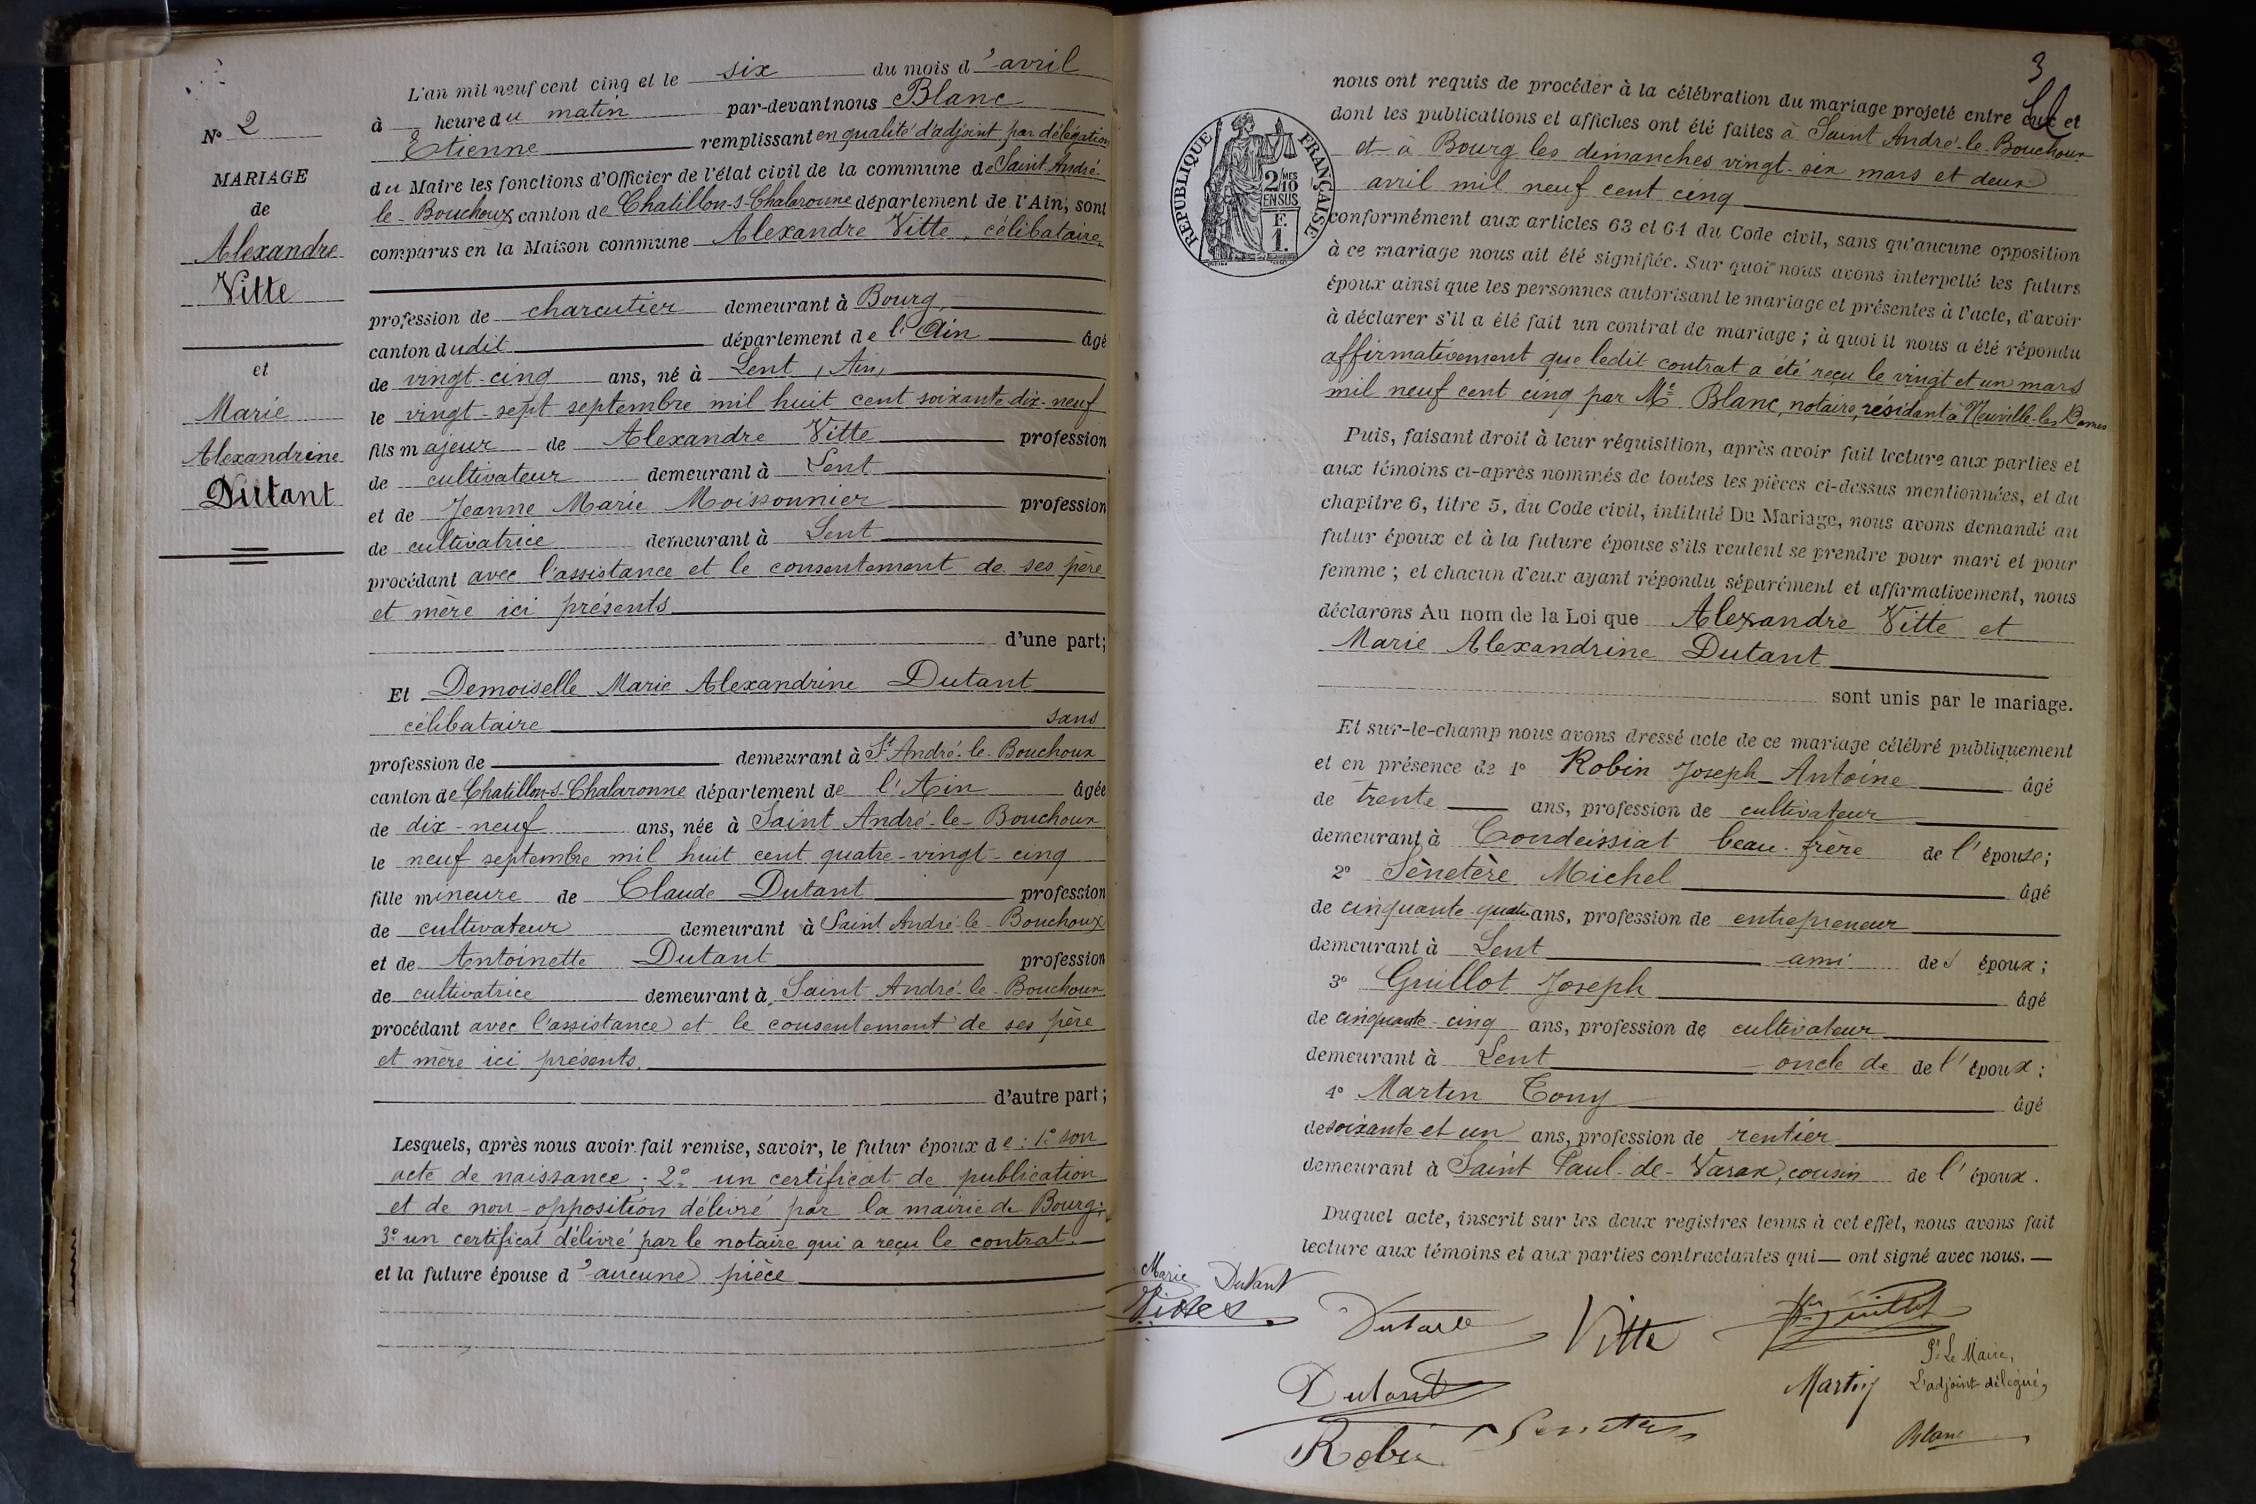 L'an mil neuf cent cinq et le six du mois d'avril
à heure du matin par-devant nous Blanc
Etienne remplissant en qualité d'adjoint par délégation
du Maire les fonctions d'Officier de l'état civil de la commune de Saint-André-
le-Bouchoux canton de Chatillon-s-Chalaronne département de l'Ain, sont
comparus en la Maison commune Alexandre Vitte, célibataire,
profession de charcutier demeurant à Bourg,
canton dudit département de l'Ain âgé
de vingt-cinq ans, né à Lent, Ain,
le vingt-sept septembre mil huit cent soixante dix-neuf
fils majeur de Alexandre Vitte profession
de cultivateur demeurant à Lent
et de Jeanne Marie Moissonnier profession
de cultivatrice demeurant à Lent
procédant avec l'assistance et le consentement de ses père
et mère ici présents
d'une part;
Et Demoiselle Marie Alexandrine Dutant
célibataire sans
profession de demeurant à St André-le-Bouchoux
canton de Chatillon-s-Chalaronne département de l'Ain âgée
de dix-neuf ans, née à Saint André-le-Bouchoux
le neuf septembre mil huit cent quatre-vingt-cinq
fille mineure de Claude Dutant profession
de cultivateur demeurant à Saint André-le-Bouchoux
et de Antoinette Dutant profession
de cultivatrice demeurant à Saint André-le-Bouchoux
procédant avec l'assistance et le consentement de ses père
et mère ici présents.
d'autre part;
Lesquels, après nous avoir fait remise, savoir, le futur époux de : 1° son
acte de naissance; 2° un certificat de publication
et de non-opposition délivré par la mairie de Bourg;
3° un certificat délivré par le notaire qui a reçu le contrat.
et la future épouse d'aucune pièce
N° 2
MARIAGE
de
Alexandre
Vitte
et
Marie
Alexandrine
Dutant
3
nous ont requis de procéder à la célébration du mariage projeté entre eux et
dont les publications et affiches ont été faites à Saint André-le-Bouchoux
et à Bourg les dimanches vingt-six mars et deux
avril mil neuf cent cinq
conformément aux articles 63 et 64 du Code civil, sans qu'aucune opposition
à ce mariage nous ait été signifiée. Sur quoi nous avons interpellé les futurs
époux ainsi que les personnes autorisant le mariage et présentes à l'acte, d'avoir
à déclarer s'il a été fait un contrat de mariage; à quoi il nous a été répondu
affirmativement que ledit contrat a été reçu le vingt et un mars
mil neuf cent cinq par Me Blanc, notaire, résidant à Neuville-les-Dames
Puis, faisant droit à leur réquisition, après avoir fait lecture aux parties et
aux témoins ci-après nommés de toutes les pièces ci-dessus mentionnées, et du
chapitre 6, titre 5, du Code civil, intitulé Du Mariage, nous avons demandé au
futur époux et à la future épouse s'ils veulent se prendre pour mari et pour
femme; et chacun d'eux ayant répondu séparément et affirmativement, nous
déclarons Au nom de la Loi que Alexandre Vitte et
Marie Alexandrine Dutant
sont unis par le mariage.
Et sur-le-champ nous avons dressé acte de ce mariage célébré publiquement
et en présence de 1° Robin Joseph-Antoine âgé
de trente ans, profession de cultivateur
demeurant à Condeissiat beau-frère de l'épouse;
2° Sènetère Michel âgé
de cinquante-quatre ans, profession de entrepreneur
demeurant à Lent ami des époux;
3° Guillot Joseph âgé
de cinquante-cinq ans, profession de cultivateur
demeurant à Lent oncle de de l'époux;
4° Martin Tony âgé
de soixante et un ans, profession de rentier
demeurant à Saint Paul-de-Varax, cousin de l'époux.
Duquel acte, inscrit sur les deux registres tenus à cet effet, nous avons fait
lecture aux témoins et aux parties contractantes qui — ont signé avec nous. —
RÉPUBLIQUE FRANÇAISE
2 MES
10
EN SUS
F
1.
Marie Dutant
Vitte
Guillot
Dutant
Martin
Pr Le Maire,
L'adjoint-délégué,
Robin
Blanc